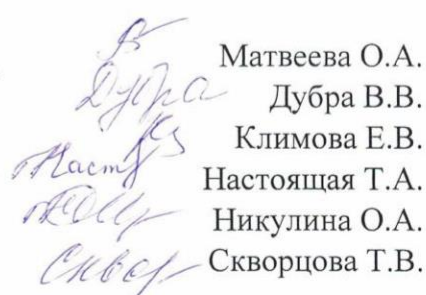 Матвеева О.А.
Дубра Дубра В.В.
Климова Е.В.
Наст Настоящая Т.А.
Никулина О.А.
Сквор Скворцова Т.В.